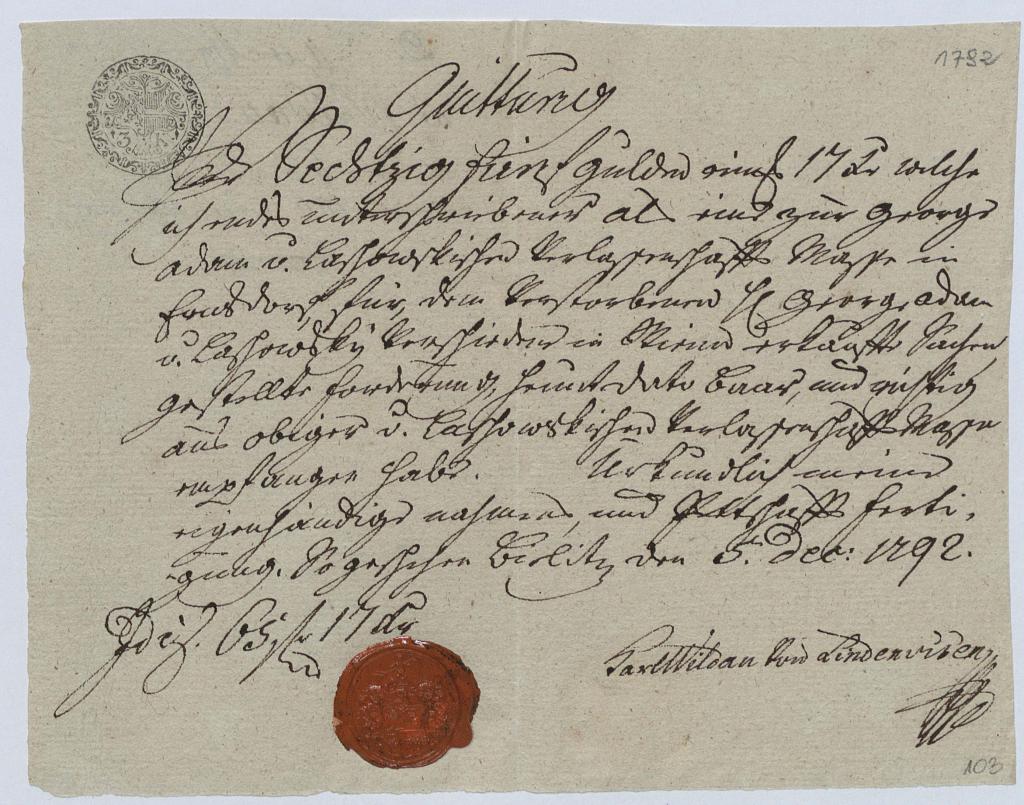 1792
Quittung
3 K
Per Sechtzig fünf gulden 17 Kr welche
ich endes unterschriebener als eine zur George
adam v. Laschowskischen Verlassenschafts Masse in
Ernsdorf, für, dem Verstorbenen H George adam
v. Laschowsky Verschiedene in Wienn erkaufte Sachen
gestellte forderung, heunt dato baar, und richtig
aus obiger v. Laschowskischen Verlassenschafts Masse
empfangen habe. Urkundlich meine
eigenhändige nahmens, und Pettschaffts ferti,
gung. So geschehen Bielitz den 5. Dec: 1792.
Id est. 65 fr 17 Kr
Karl Wildau von Lindenwiesen
103